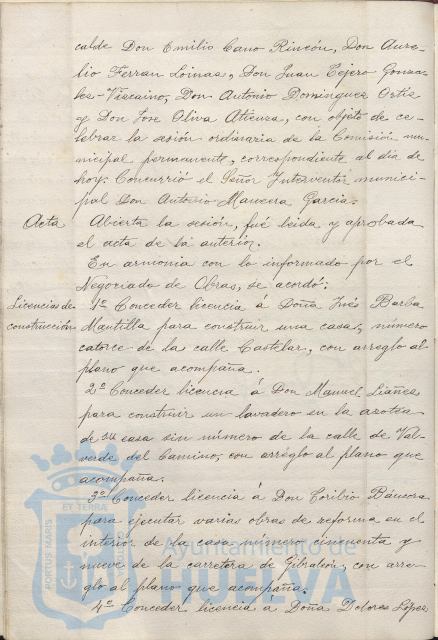 calde Don Emilio Cano Rincón, Don Aure-
lio Ferran Loinas, Don Juan Tejero Gonza-
les-Viscaino, Don Antonio Dominguez Ortis
y Don Jose Oliva Atienza, con objeto de ce-
lebrar la sesión ordinaria de la Comisión mu-
nicipal permanente, correspondiente al dia de
hoy. Concurrió el Señor Interventor munici-
pal Don Antonio Manuera Garcia.
Acta
Abierta la sesión, fué leida y aprobada
el acta de la anterior.
En armonia con lo informado por el
Negociado de Obras, se acordó:
Licencias de
construcción
1º Conceder licencia á Doña Inés Barba
Mantilla para construir una casa, número
catorce de la calle Castelar, con arreglo al
plano que acompaña.
2º Conceder licencia á Don Manuel Liáñez
para construir un lavadero en la azotea
de su casa sin número de la calle de Val-
verde del Camino, con arreglo al plano que
acompaña.
3º Conceder licencia á Don Toribio
para ejecutar varias obras de reforma en el
interior de la casa número cincuenta y
nueve de la carretera de Gibraleón, con arre-
glo al plano que acompaña.
4º Conceder licencia á Doña Dolores López
PORTUS MARIS
ET TERRÆ
Ayuntamiento de
HUELVA